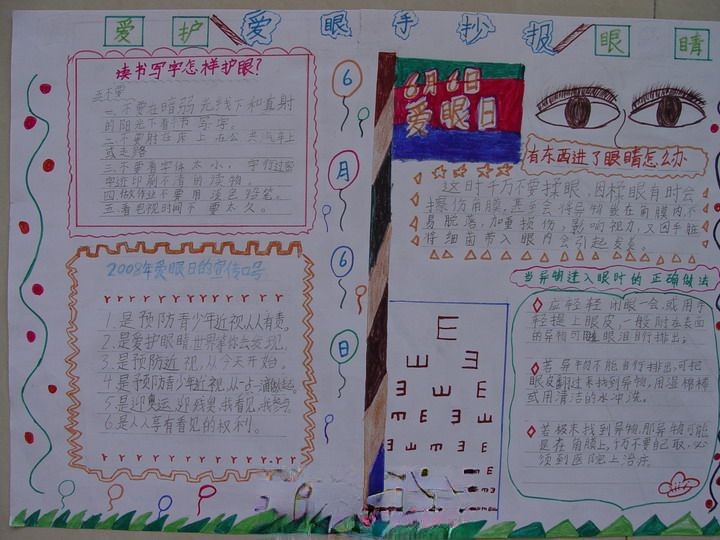 爱护爱眼手抄报眼睛
读书写字怎样护眼？
五不要
一不要在暗弱光线下和直射
的阳光下看书写字。
二不要躺在床上在公共汽车上
或走路
三不要看字体太小，字行过密
字迹印刷不清的读物。
四做作业不要用淡色铅笔。
五看电视时间不要太久。
6
月
6
日
2008年爱眼日的宣传口号
1.是预防青少年近视人人有责。
2.是爱护眼睛世界等你去发现。
3.是预防近视，从今天开始。
4.是预防青少年近视，从一点一滴做起。
5.是迎奥运迎残奥，我看见，我参与。
6.是人人享有看见的权利。
6月6日
爱眼日
有东西进了眼睛怎么办
这时千万不要揉眼，因揉眼有时会
擦伤角膜，甚至会将异物嵌在角膜内，不
易脱落，加重损伤，影响视力，又因手脏
将细菌带入眼内会引起发炎。
当异物进入眼时的正确做法
应轻轻闭眼一会，或用手
轻提上眼皮，一般附在表面
的异物可随眼泪自行排出。
若异物不能自行排出，可把
眼皮翻过来找到异物，用湿棉棒
或用清洁的水冲洗。
若极未找到异物，那异物可能
是在角膜上，千万不要自取，必
须到医院上治疗。
E
E E E